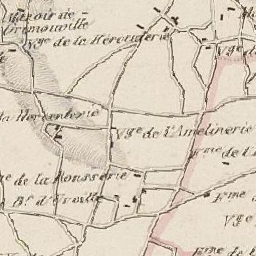 Manoir de
Cremouville
Vge de la Héreuderie
Vge de
la Hercenterie
Vge de l'Amelinerie
Fme de l'
me de la Rousserie
Bn d'Urville
Fme
Vge
Fme de